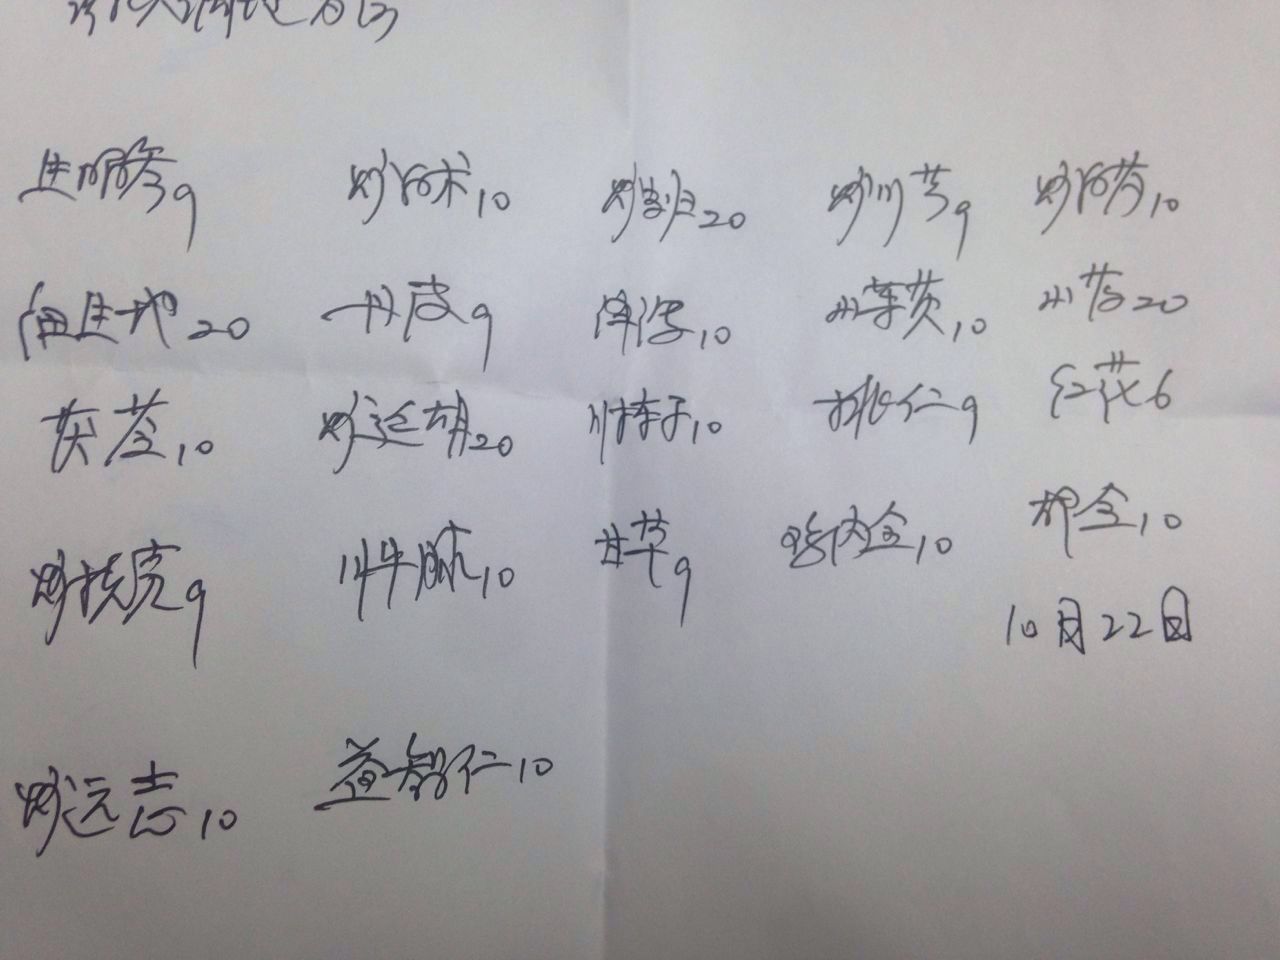 生晒参9 炒白术10 炒当归20 炒川芎9 炒白芍10
细生地20 丹皮9 泽泻10 山萸肉10 山药20
茯苓10 炒延胡20 川楝子10 桃仁9 红花6
炒枳壳9 川牛膝10 甘草9 鸡内金10 郁金10
10月22日
炒远志10 益智仁10